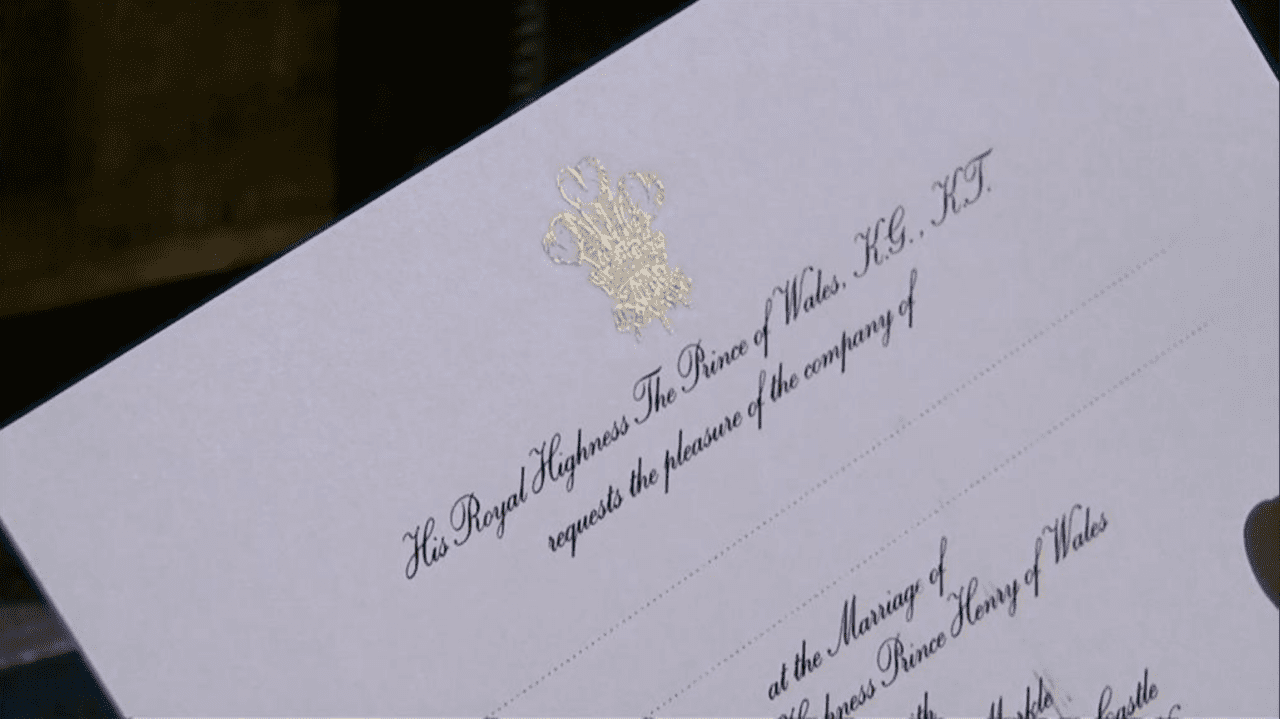 His Royal Highness The Prince of Wales, K.G., K.T.
requests the pleasure of the company of
at the Marriage of
Prince Henry of Wales
Markle
Castle